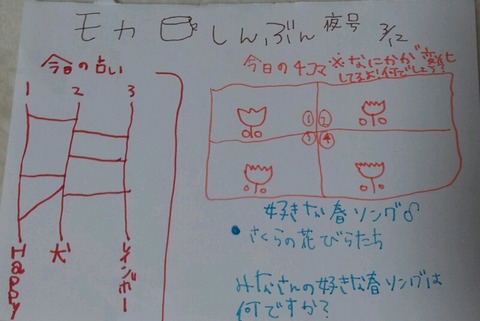 モカ しんぶん 夜号 3/12
今日の占い
1 2 3
Happy
犬
レインボー
今日の4コマ ※なにかが変化
してるよ!何でしょう
① ②
③ ④
好きな春ソング♂
• さくらの花びらたち
みなさんの好きな春ソングは
何ですか?